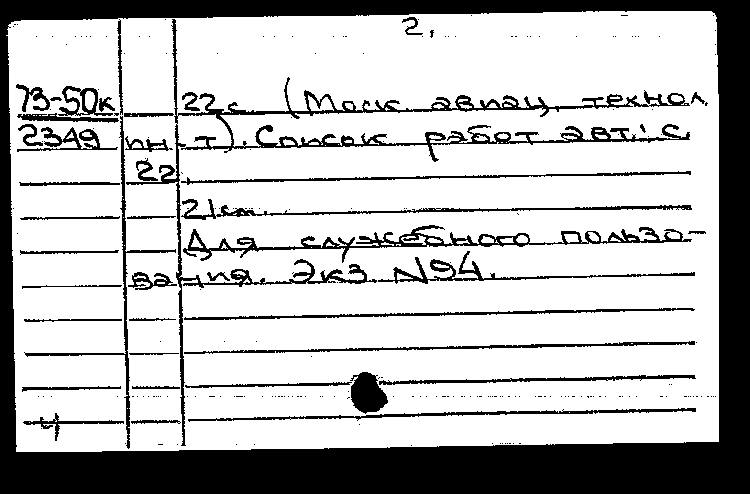 2.
73-50к 22 с. (Моск авиац. технол.
2349 ин-т). Список работ авт.: с.
22.
21 см.
Для служебного пользо-
вания. Экз N94.
4